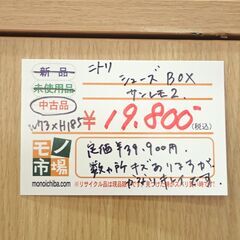 新品
ニトリ
未使用品
シューズBOX
中古品
サンレモ2.
W73×H185
¥19,800(税込)
モノ市場
monoichiba.com
定価¥39,900円.
数ヶ所キズありますが、
※リサイクル品は現品限り